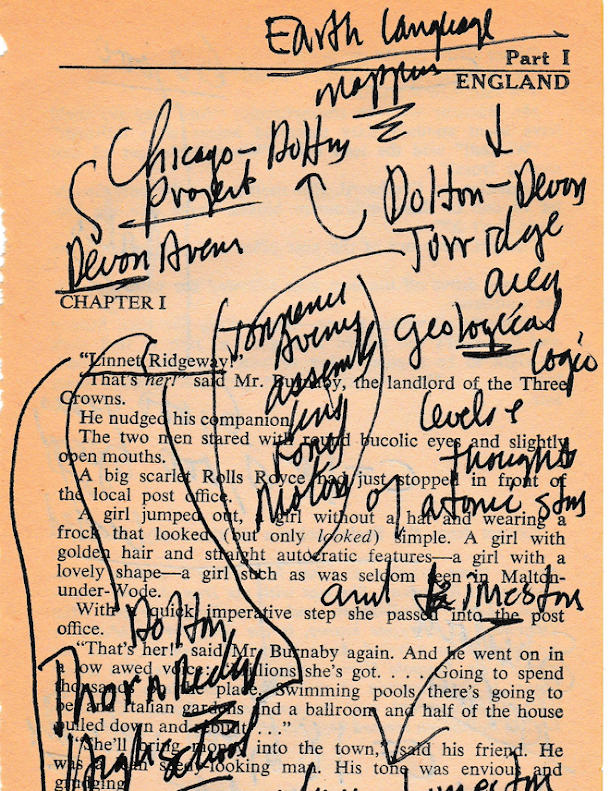 Earth Language
Part I
ENGLAND
Chicago-Dolton
Project
Dolton-Devon
Torridge
area
Devon Avenu
CHAPTER I
geological
logic
levels
thoughts
of atomic
and
Avenu
assembly
Motors
"Linnet Ridgeway!"
"That's her!" said Mr. Burnaby, the landlord of the Three
Crowns.
He nudged his companion.
The two men stared with round bucolic eyes and slightly
open mouths.
A big scarlet Rolls Royce had just stopped in front of
the local post office.
A girl jumped out, a girl without a hat and wearing a
frock that looked (but only looked) simple. A girl with
golden hair and straight autocratic features—a girl with a
lovely shape—a girl such as was seldom seen in Malton-
under-Wode.
With a quick imperative step she passed into the post
office.
"That's her!" said Mr. Burnaby again. And he went on in
a low awed voice: "Millions she's got. . . . Going to spend
thousands on the place. Swimming pools there's going to
be, and Italian gardens and a ballroom and half of the house
pulled down and rebuilt. . ."
"She'll bring money into the town," said his friend. He
was a lean seedy-looking man. His tone was envious and
grudging.
Dolton
Thornridge
High School